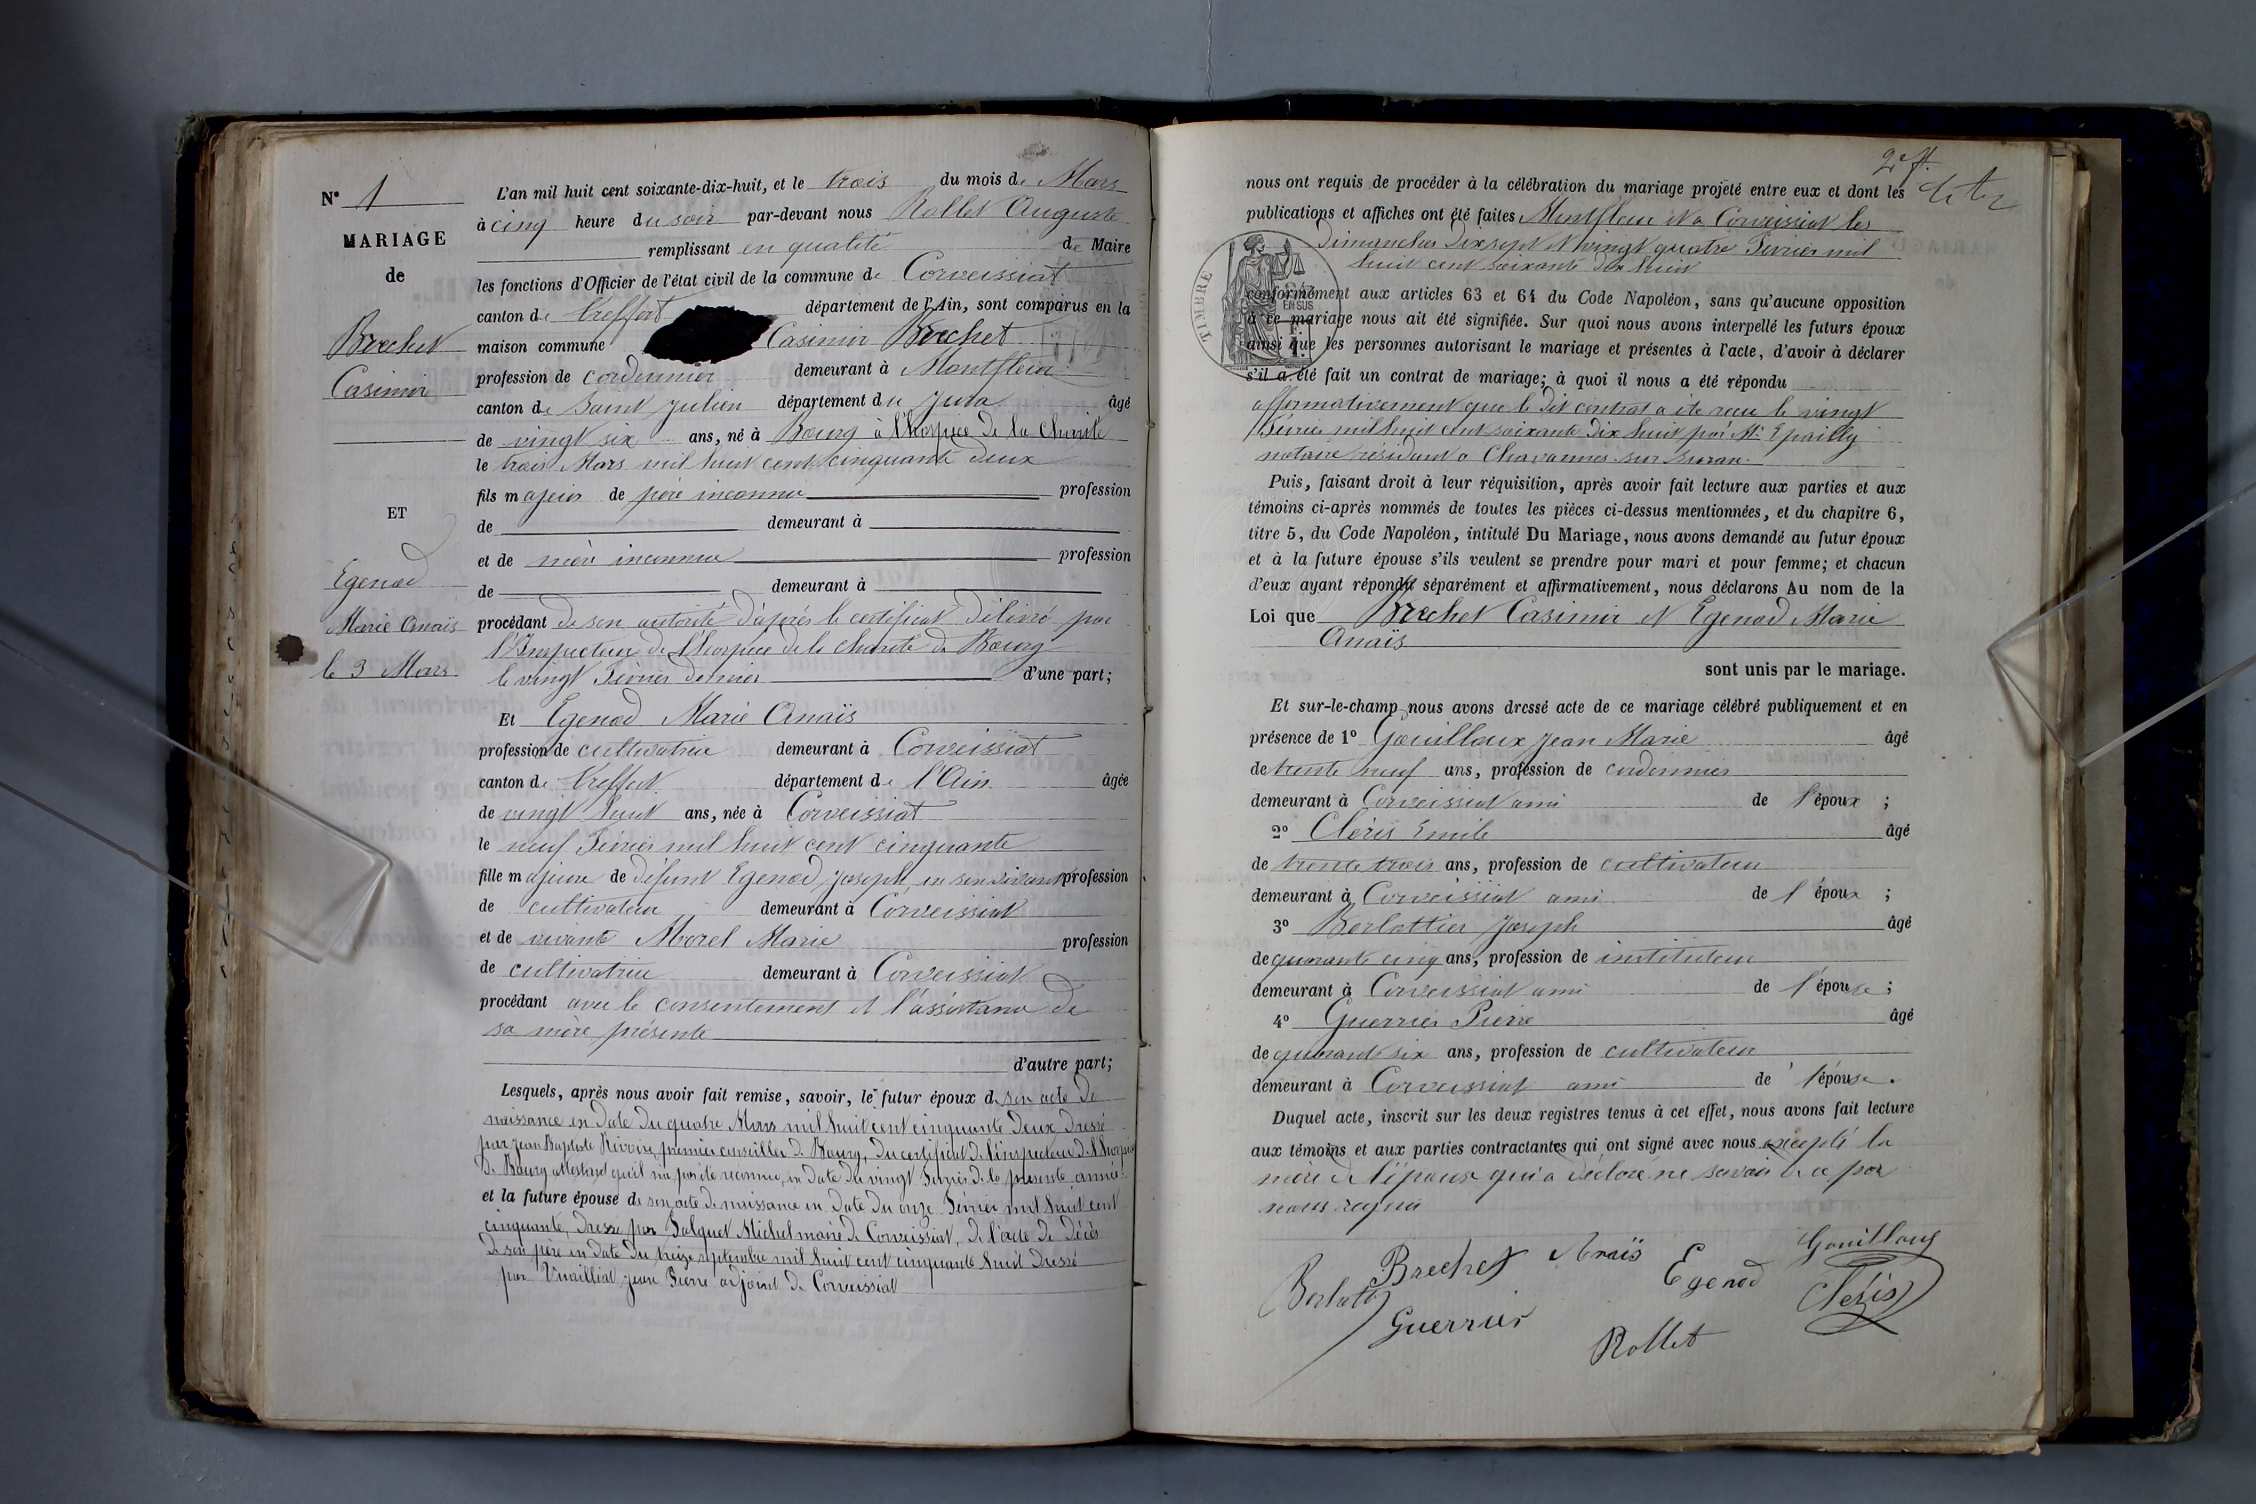 N° 1
MARIAGE
de
Brechet
Casimir
ET
Egenod
Marie Anaïs
le 3 Mars
L'an mil huit cent soixante-dix-huit, et le trois du mois de Mars
à cinq heure du soir par-devant nous Rollet Auguste
remplissant en qualité de Maire
les fonctions d'Officier de l'état civil de la commune de Corveissiat
canton de Treffort département de l'Ain, sont comparus en la
maison commune Casimir Brechet
profession de cordonnier demeurant à Montfleur
canton de Saint Julien département du Jura âgé
de vingt six ans, né à Bourg à l'hospice de la Charité
le trois Mars mil huit cent cinquante deux
fils majeur de père inconnu profession
de demeurant à
et de mère inconnue profession
de demeurant à
procédant de son autorité d'après le certificat délivré par
l'Inspecteur de l'Hospice de la charité de Bourg
le vingt Février dernier d'une part;
Et Egenod Marie Anaïs
profession de cultivatrice demeurant à Corveissiat
canton de Treffort département de l'Ain âgée
de vingt huit ans, née à Corveissiat
le neuf Février mil huit cent cinquante
fille majeure de défunt Egenod Joseph en son vivant profession
de cultivateur demeurant à Corveissiat
et de vivante Morel Marie profession
de cultivatrice demeurant à Corveissiat
procédant avec le consentement et l'assistance de
sa mère présente
d'autre part;
Lesquels, après nous avoir fait remise, savoir, le futur époux de son acte de
naissance en date du quatre Mars mil huit cent cinquante deux dressé
par Jean Baptiste premier conseiller de Bourg, du certificat de l'inspecteur de l'Hospice
de Bourg attestant qu'il n'a pas été reconnu, en date du vingt Février de la présente année
et la future épouse de son acte de naissance en date du onze Février mil huit cent
cinquante, dressé par Michel maire de Corveissiat, de l'acte de décès
de son père en date du treize septembre mil huit cent cinquante huit dressé
par Jean Pierre adjoint de Corveissiat
2e f.
nous ont requis de procéder à la célébration du mariage projeté entre eux et dont les
publications et affiches ont été faites Montfleur et à Corveissiat les
Dimanches dix sept et vingt quatre Février mil
huit cent soixante dix huit
TIMBRE
EN SUS
conformément aux articles 63 et 64 du Code Napoléon, sans qu'aucune opposition
à ce mariage nous ait été signifiée. Sur quoi nous avons interpellé les futurs époux
ainsi que les personnes autorisant le mariage et présentes à l'acte, d'avoir à déclarer
s'il a été fait un contrat de mariage; à quoi il nous a été répondu
affirmativement que le dit contrat a été reçu le vingt
Février mil huit cent soixante dix huit par Me Epailly
notaire résidant à Chavannes sur Suran.
Puis, faisant droit à leur réquisition, après avoir fait lecture aux parties et aux
témoins ci-après nommés de toutes les pièces ci-dessus mentionnées, et du chapitre 6,
titre 5, du Code Napoléon, intitulé Du Mariage, nous avons demandé au futur époux
et à la future épouse s'ils veulent se prendre pour mari et pour femme; et chacun
d'eux ayant répondu séparément et affirmativement, nous déclarons Au nom de la
Loi que Brechet Casimir et Egenod Marie
Anaïs
sont unis par le mariage.
Et sur-le-champ nous avons dressé acte de ce mariage célébré publiquement et en
présence de 1° Gouilloux Jean Marie âgé
de trente neuf ans, profession de cordonnier
demeurant à Corveissiat ami de l'époux ;
2° Clézis Emile âgé
de trente trois ans, profession de cultivateur
demeurant à Corveissiat ami de l'époux ;
3° Berlottier Joseph âgé
de quarante cinq ans, profession de instituteur
demeurant à Corveissiat ami de l'épouse ;
4° Guerrier Pierre âgé
de quarante six ans, profession de cultivateur
demeurant à Corveissiat ami de l'épouse .
Duquel acte, inscrit sur les deux registres tenus à cet effet, nous avons fait lecture
aux témoins et aux parties contractantes qui ont signé avec nous excepté la
mère de l'épouse qui a déclaré ne savoir de ce par
nous requis
Brechet Anaïs Egenod Gouilloux
Guerrier Clézis
Rollet